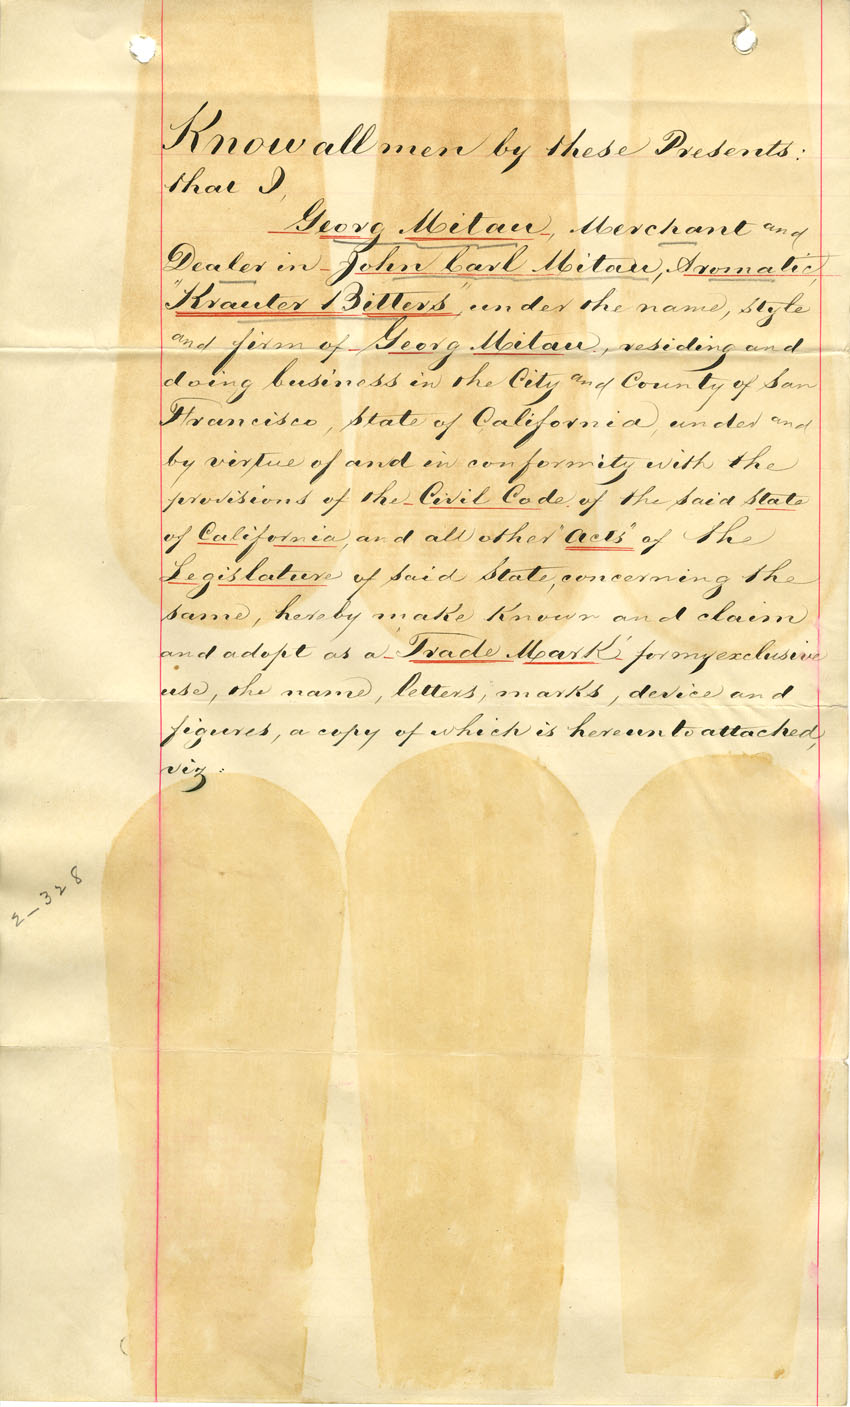 Know all men by these Presents:
that I,
Georg Mitau, Merchant and
Dealer in John Carl Mitau, Aromatic,
"Krauter Bitters" under the name, style
and firm of Georg Mitau, residing and
doing business in the City and County of San
Francisco, State of California, under and
by virtue of and in conformity with the
provisions of the Civil Code of the said State
of California, and all other "acts" of the
Legislature of said State, concerning the
same, hereby make known and claim
and adopt as a "Trade Mark" for my exclusive
use, the name, letters, marks, device and
figures, a copy of which is hereunto attached,
viz:
2-328